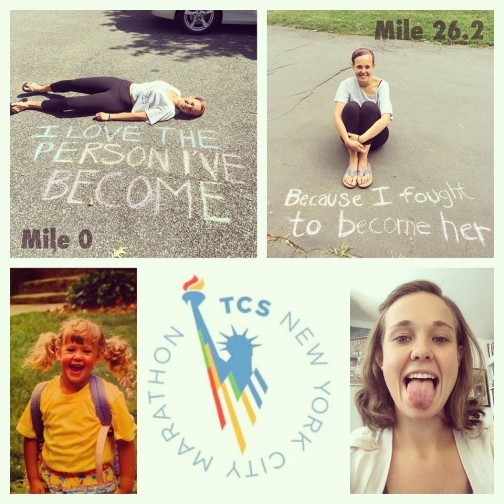 I LOVE THE
PERSON I'VE
BECOME
Mile 0
Mile 26.2
Because I fought
to become her
TCS NEW YORK CITY MARATHON